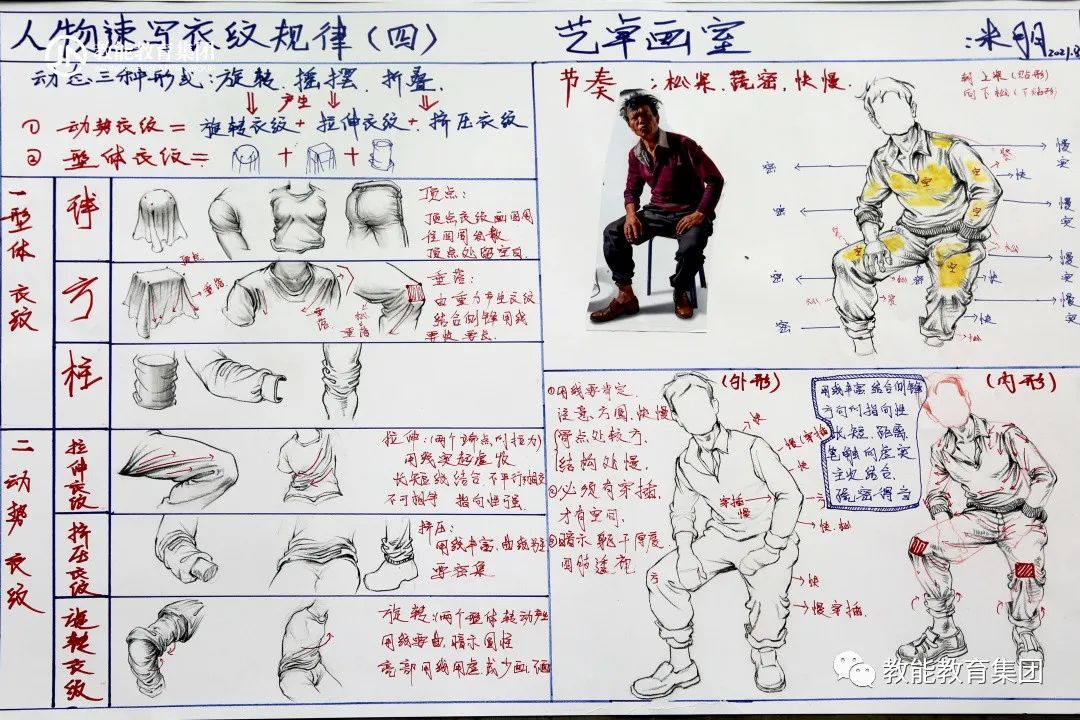 人物速写衣纹规律（四）
艺卓画室
:米朋 2021.8
教能教育集团
动态三种形式:旋转.摇摆.折叠.
产生
① 动势衣纹 = 旋转衣纹 + 拉伸衣纹 + 挤压衣纹
② 型体衣纹 =
节奏:松紧.疏密.快慢.
一 形体 衣纹
球
顶点:
顶点衣纹画圆周
顶点处留空白
顶点
方
垂落
垂落
松
垂落
垂落:
由重力产生衣纹
结合侧锋用线
柱
二 动势 衣纹
拉伸衣纹
拉伸:(两个端点的拉力)
用线实起虚收
长短线结合.不平行相交
不可相等 指向性强.
挤压衣纹
挤压:
用线丰富.曲线为主
要密集
旋转衣纹
旋转:(两个型体转动产生
用线要曲.暗示圆柱
亮部用线用虚.或少画.不画
密
密
密
密
空
空
空
空
空
紧
快
松
快
快
松
慢
实
慢
实
慢
实
慢
实
①用线要肯定.
注意.方圆.快慢
骨点处较方.
结构处慢.
②必须有穿插.
才有空间.
③暗示躯干厚度
四肢透视
(外形)
快
慢(穿插
快
穿插
慢
快.松
方
快
慢穿插.
用线丰富.结合侧锋
方向的指向性
长短.距离.
笔触的虚实
主次结合.
疏密得当
(内形)
教能教育集团